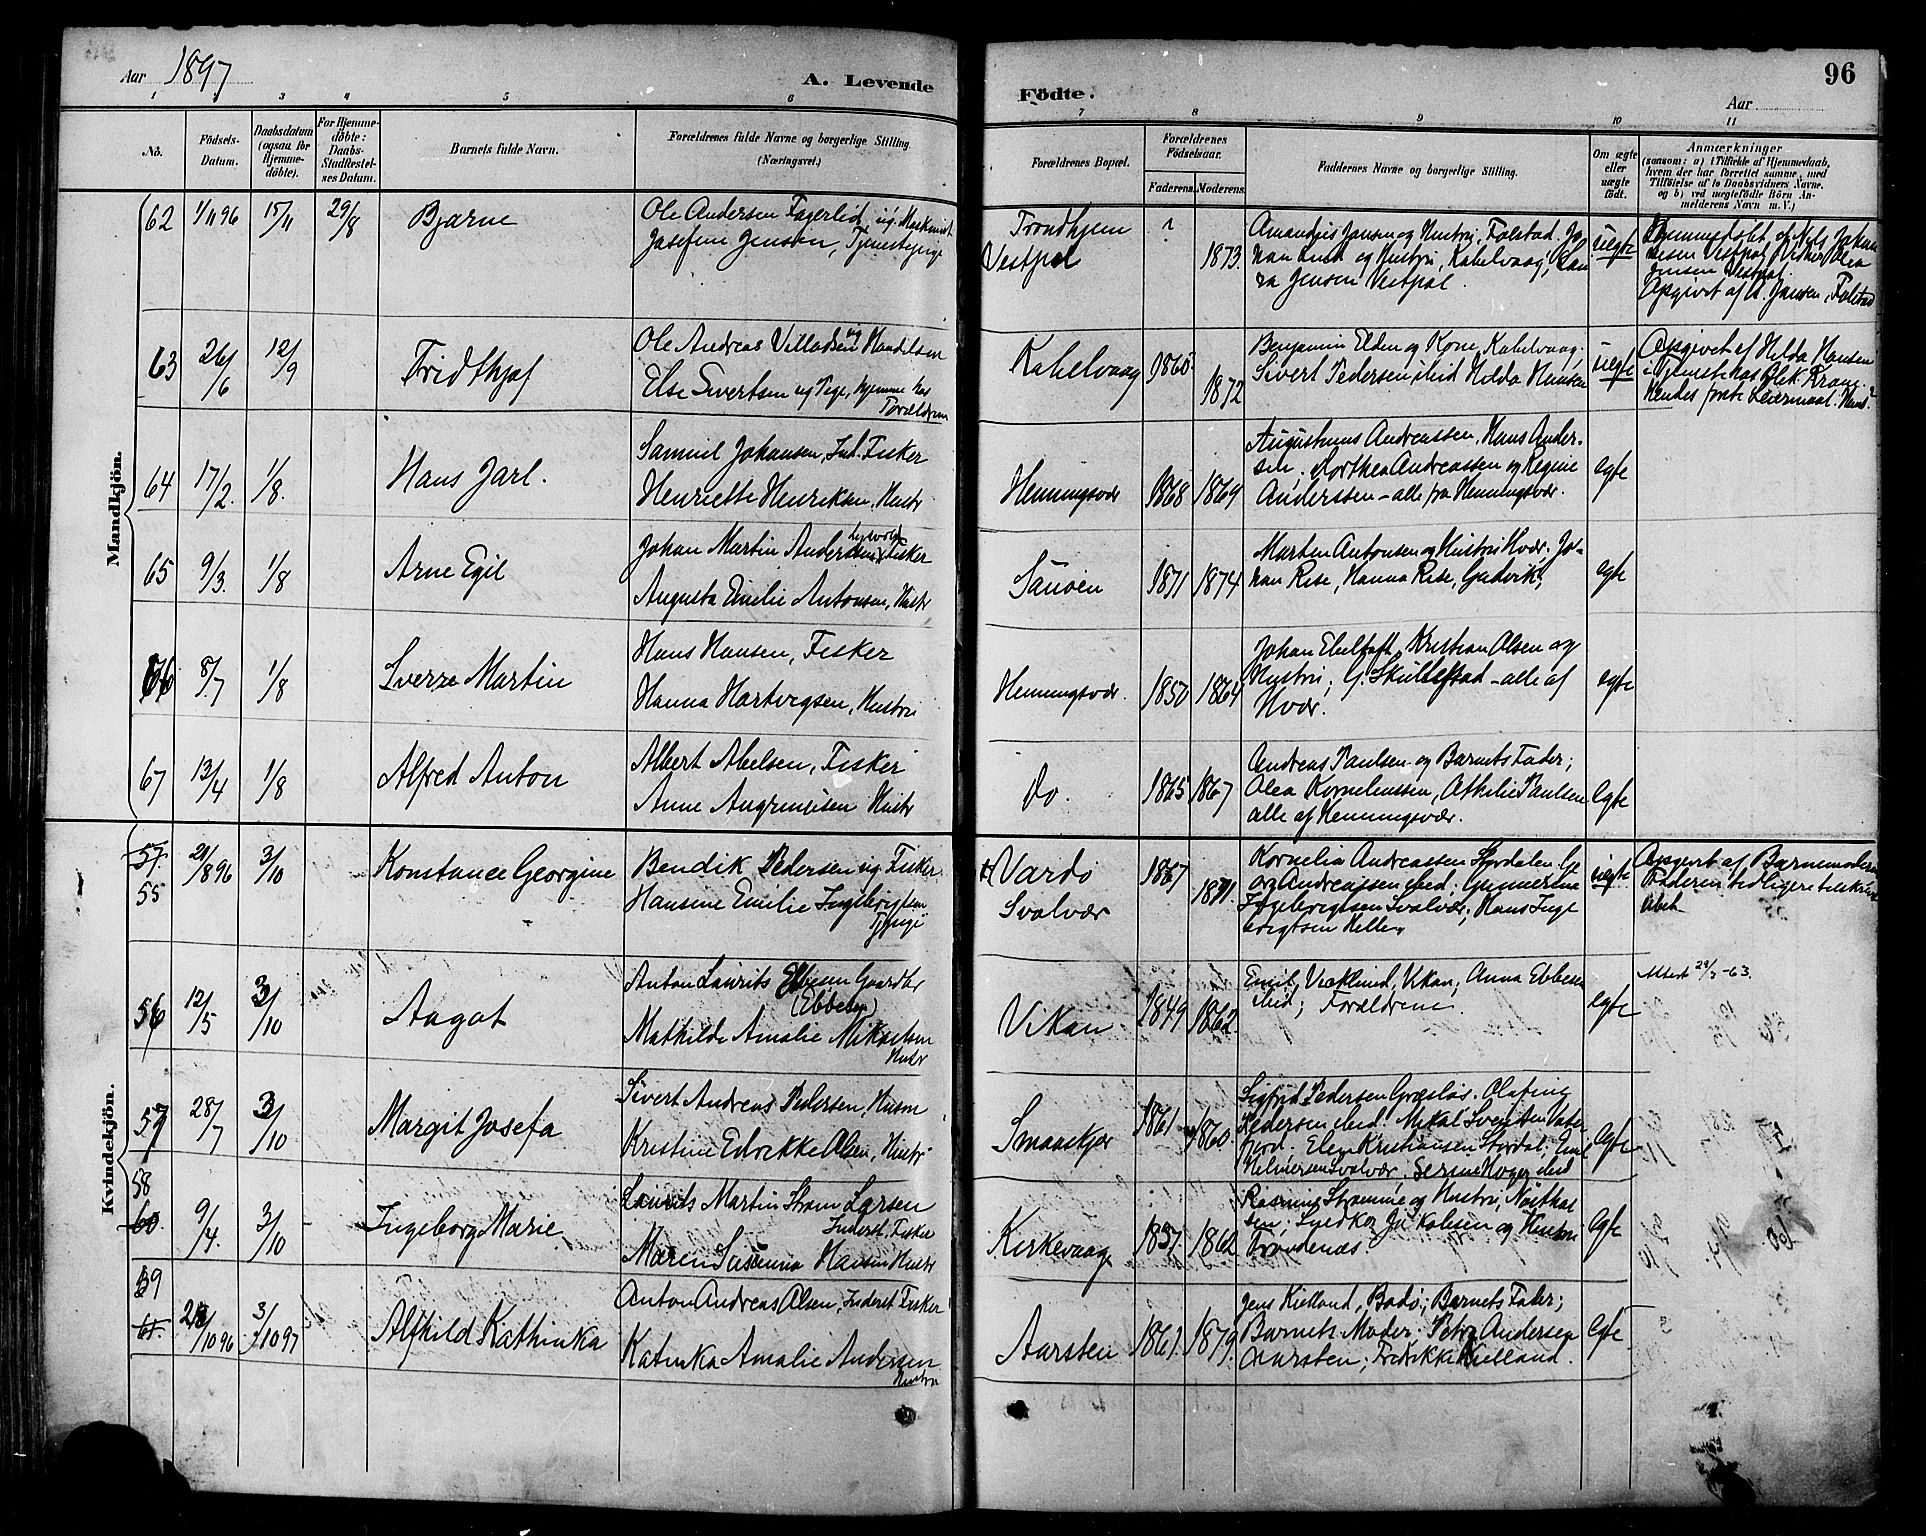 Aar 1897
A. Levende
Födte.
96
Aar
1 2 3 4 5 6 7 8 9 10 11
No.
Födsels-Datum.
Daabsdatum (ogsaa for Hjemmedöbte).
For Hjemmedöbte: Daabs-Stadfæstelses Datum.
Barnets fulde Navn.
Forældrenes fulde Navne og borgerlige Stilling. (Næringsvei.)
Forældrenes Bopæl.
Forældrenes Födselsaar.
Faderens. Moderens.
Faddernes Navne og borgerlige Stilling.
Om ægte eller uægte födt.
Anmærkninger
(saasom: a) i Tilfælde af Hjemmedaab,
hvem der har forrettet samme, med
Tilföielse af to Daabsvidners Navne,
og b) ved uægtefödte Börn An-
melderens Navn m. V.)
Mandkjön.
62 1/11 96 15/11 29/8 Bjarne
Ole Andersen Fagerlid, ug. Maskinist
Josefine Jensen, Tjenestepige
Trondhjem
Vestpol
? 1873.
Amandus Jansen og Hustru, Falstad. Jo-
han Lind og Hustru, Kabelvaag, Lau-
ra Jensen Vestpol.
uegte
Hjemmedøbt af Nels Johan
nesen Vestpol Vidner Olea
Jensen Vestpol.
Opgivet af A. Jansen, Falstad
63 26/6 12/9 Fridthjof
Ole Andreas Villadsen ug Handelsm
Else Sivertsen ug Pige, hjemme hos
Forældrene
Kabelvaag
1865 1872
Benjamin Elden og Kone, Kabelvaag;
Sivert Pedersen ibid Hilda Hansen
uegte
Opgivet af Hilda Hansen
i Tjeneste hos Blik. Krane.
Hendes første Leiermaal. Hans ?
64 17/2. 1/8. Hans Jarl.
Samuel Johansen, Ind. Fisker
Henriette Henriksen, Hustr
Henningsvær
1868 1869
Augustinus Andreassen, Hans Ander-
sen. Dorthea Andreassen og Regine
Anderssen – alle fra Henningsvær.
egte
65 9/3. 1/8 Arne Egil
Johan Martin Andersen Fisker
Augusta Emilie Antonsen, Hustr
Sauøen
1871 1874
Marten Antonsen og Hustru Hvær. Jo-
han Rise, Hanna Rise, Gudvik
egte
66 8/7 1/8 Sverre Martin
Hans Hansen, Fisker
Hanna Hartvigsen, Hustru
Henningsvær.
1850 1864
Johan Ebeltoft, Kristian Olsen og
Hustru; G. Skullestad – alle af
Hvær.
egte
67 13/4 1/8 Alfred Anton
Albert Abelsen, Fisker
Anne Hustr
Do.
1865 1867
Andreas Paulsen og Barnets Fader;
Olea Korneliussen, Othelie Paulsen
alle af Henningsvær.
egte
Kvindekjön.
57. 55 21/8 96 3/10 Konstance Georgine
Bendik Pedersen ug Fisker
Hansine Emilie Ingebrigtsen
Tjpige
Vardø
Svolvær
1867 1871.
Kornelia Andreassen Stordalen, Ge
org Andreassen ibid; Gunnerine
Ingebrigtsen Svolvær; Hans Inge
brigtsen Helle.
uegte
Opgivet af Barnemoderen
Faderen tidligere
56 12/5 3/10 Aagot
Anton Laurits Ebbesen Gaardbr
(Ebbesen)
Mathilde Amalie Mikaelsen
Hustr
Vikan
1849 1862
Emil Vicklund, Vikan; Anna Ebbesen
ibid; Forældrene
egte
Attest 29/3 -63.
57 28/7 3/10 Margit Josefa
Sivert Andreas Pedersen, Husm
Kristine Edvikke Olsen, Hustr
Smaaskjær
1861 1860.
Sigfrid Pedersen Græsløs. Olafine
Pedersen ibid. Mikal Svendsen Vater
fjord, Elen Kristiansen Stordal, Emil
Helmersen Svolvær, Serine Hoger ibid
egte
58 60 9/4. 3/10 Ingeborg Marie
Laurits Martin Strøm Larsen
Inderst, Fisker
Maren Susanna Hansen Hustr
Kirkevaag
1857 1862
Rasmus Strømme og Hustru,
sen, og Hustru
Trondenæs
egte
59 61. 28/10 96 3/10 97 Alfhild Kathinka
Anton Andreas Olsen, Inderst Fisker
Katinka Amalie Andersen
Hustru
Aarsten
1861. 1879.
Jens Kielland, Bodø; Barnets Fader;
Barnets Moder; Petra Andersen
Aarsten; Fredrikke Kielland.
egte